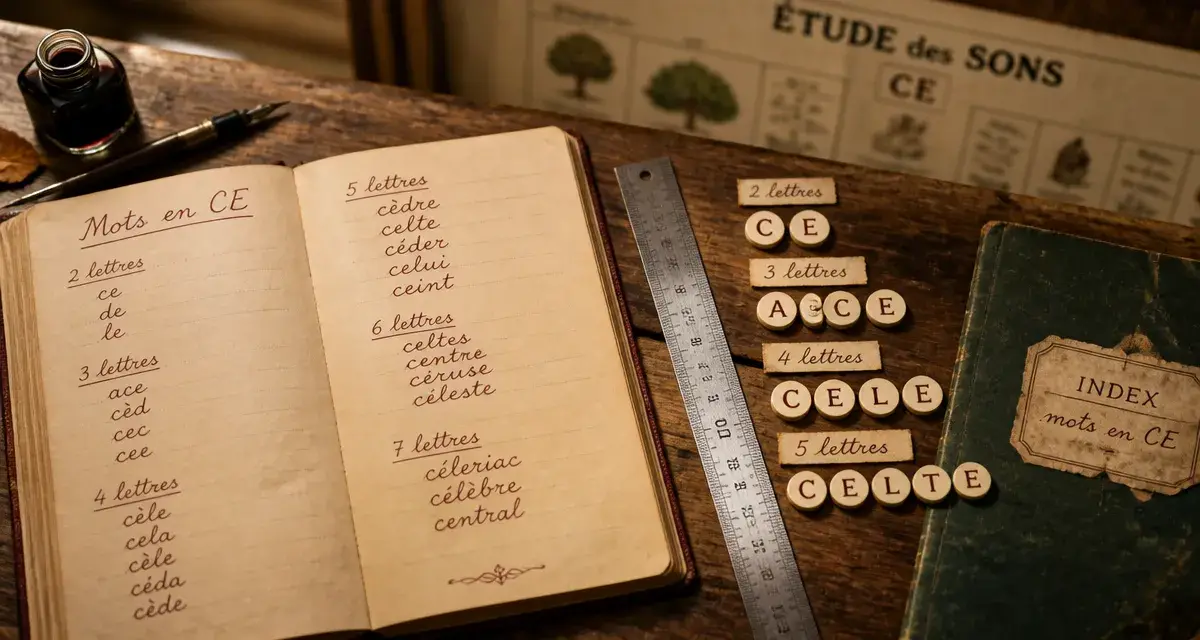 Mots en CE
2 lettres
ce
de
le
3 lettres
ace
cèd
cec
cee
4 lettres
cèle
cela
cèle
céda
cède
5 lettres
cèdre
celte
céder
celui
ceint
6 lettres
celtes
centre
céruse
céleste
7 lettres
céleriac
célèbre
central
2 lettres
CE
3 lettres
A CE
4 lettres
CELE
5 lettres
CELTE
ÉTUDE des SONS
CE
INDEX
mots en CE